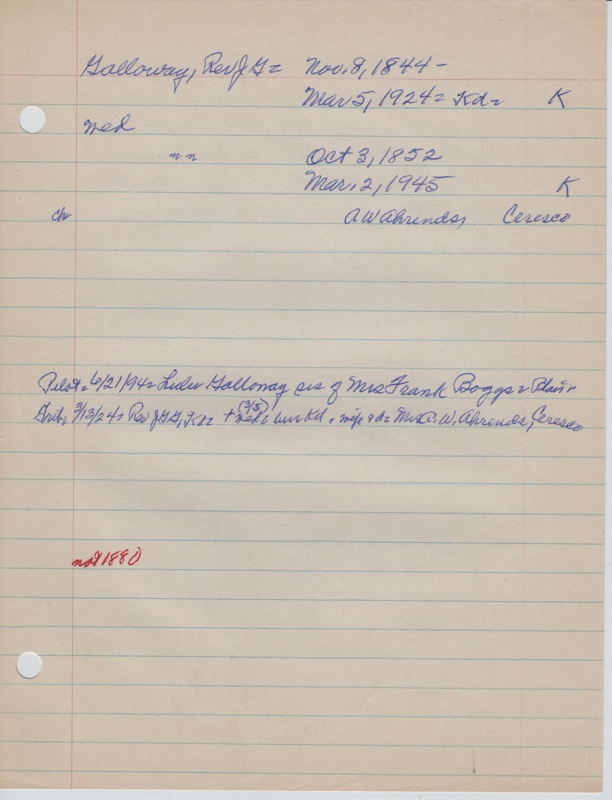 Galloway, Rev J G = Nov. 8, 1844 -
Mar 5, 1924 = Kd = K
Wed
" " Oct 3, 1852
Mar. 2, 1945 K
ch A W Ahrends, Ceresco
Pilot = 6/21/94 = Lulu Galloway sis of Mrs Frank Boggs = Blair "
Trib = 3/13/24 = Rev J G G, Kd = + Wed (3/5) bur Kd = wife & d = Mrs A. W. Ahrends, Ceresco
not 1880